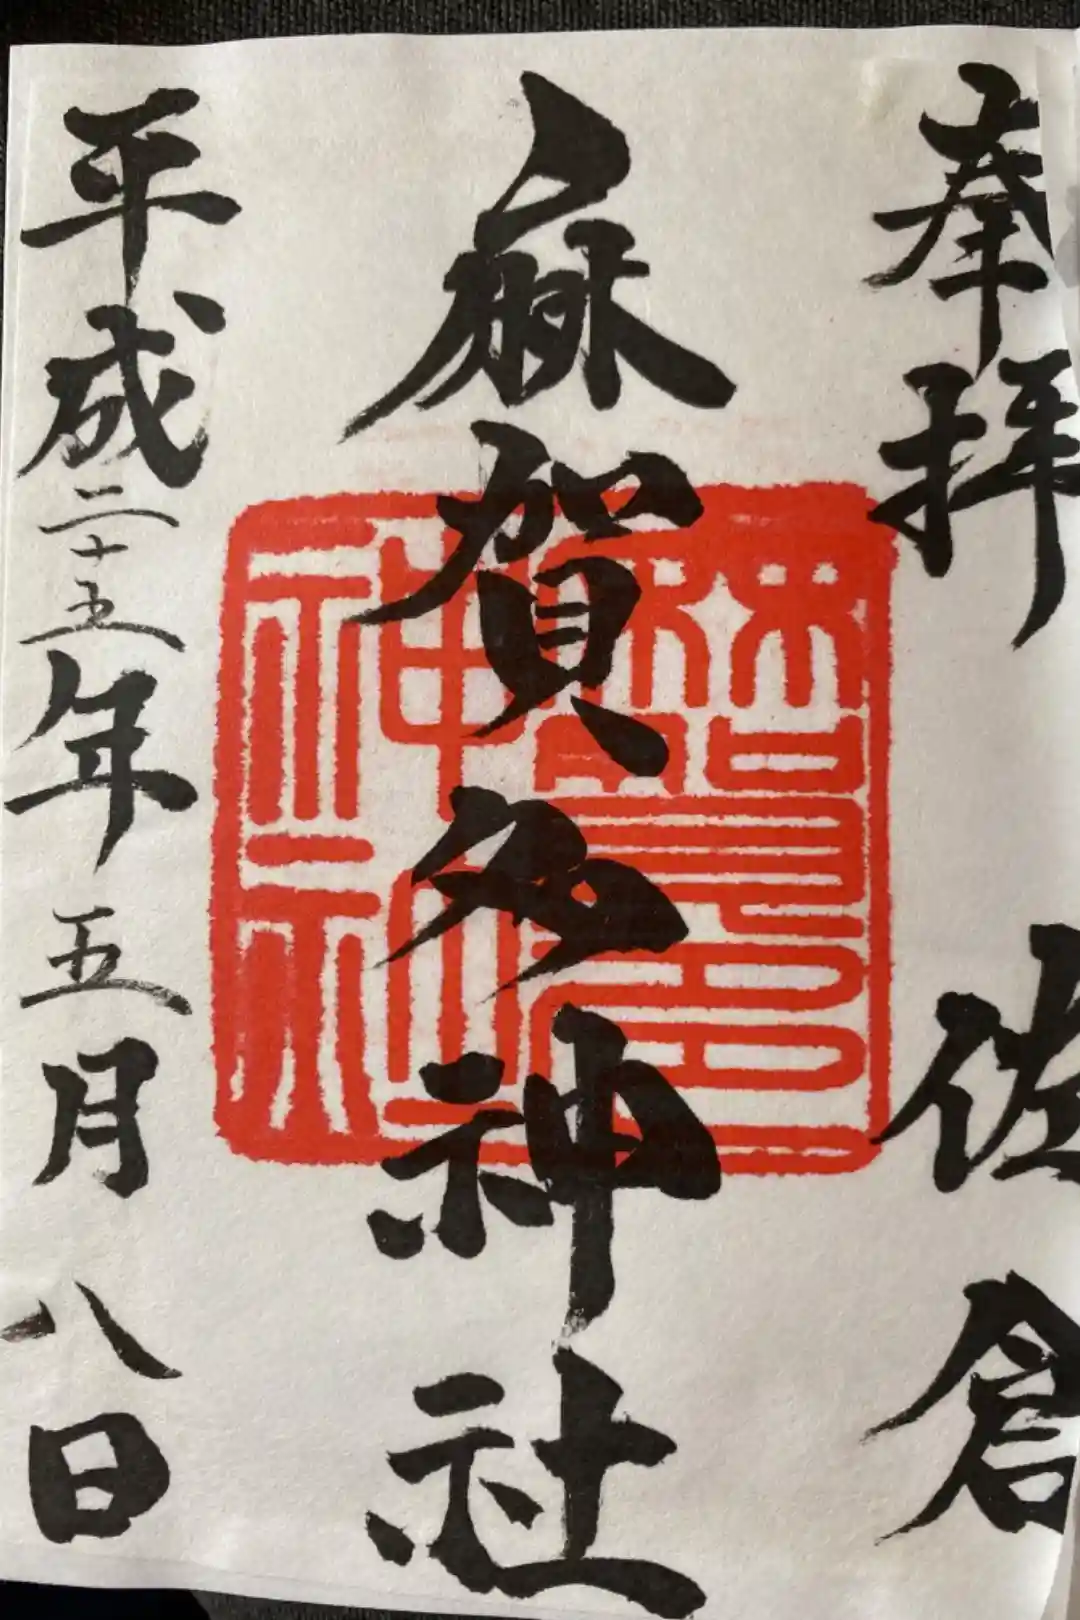 奉拝 佐倉
麻賀多神社
麻賀多神社
平成二十五年五月八日